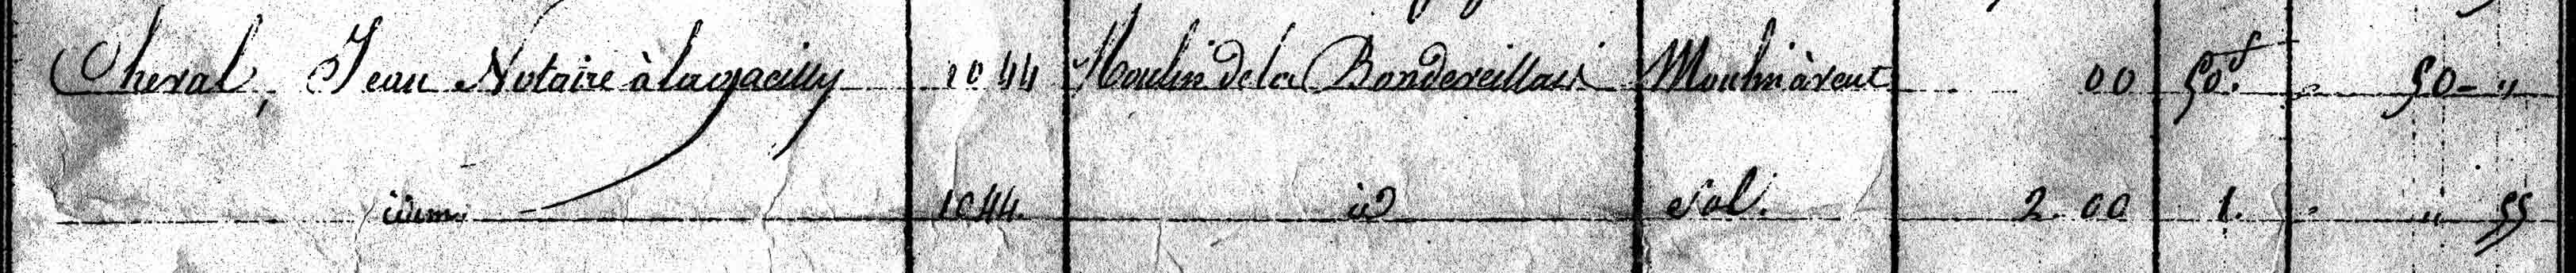 Cheval, Jean Notaire à lagacilly 1044 Moulin de la Bandereillais Moulin à vent 00 50.f 50 - "
idem 1044. id Sol. 2.00 1. " 55